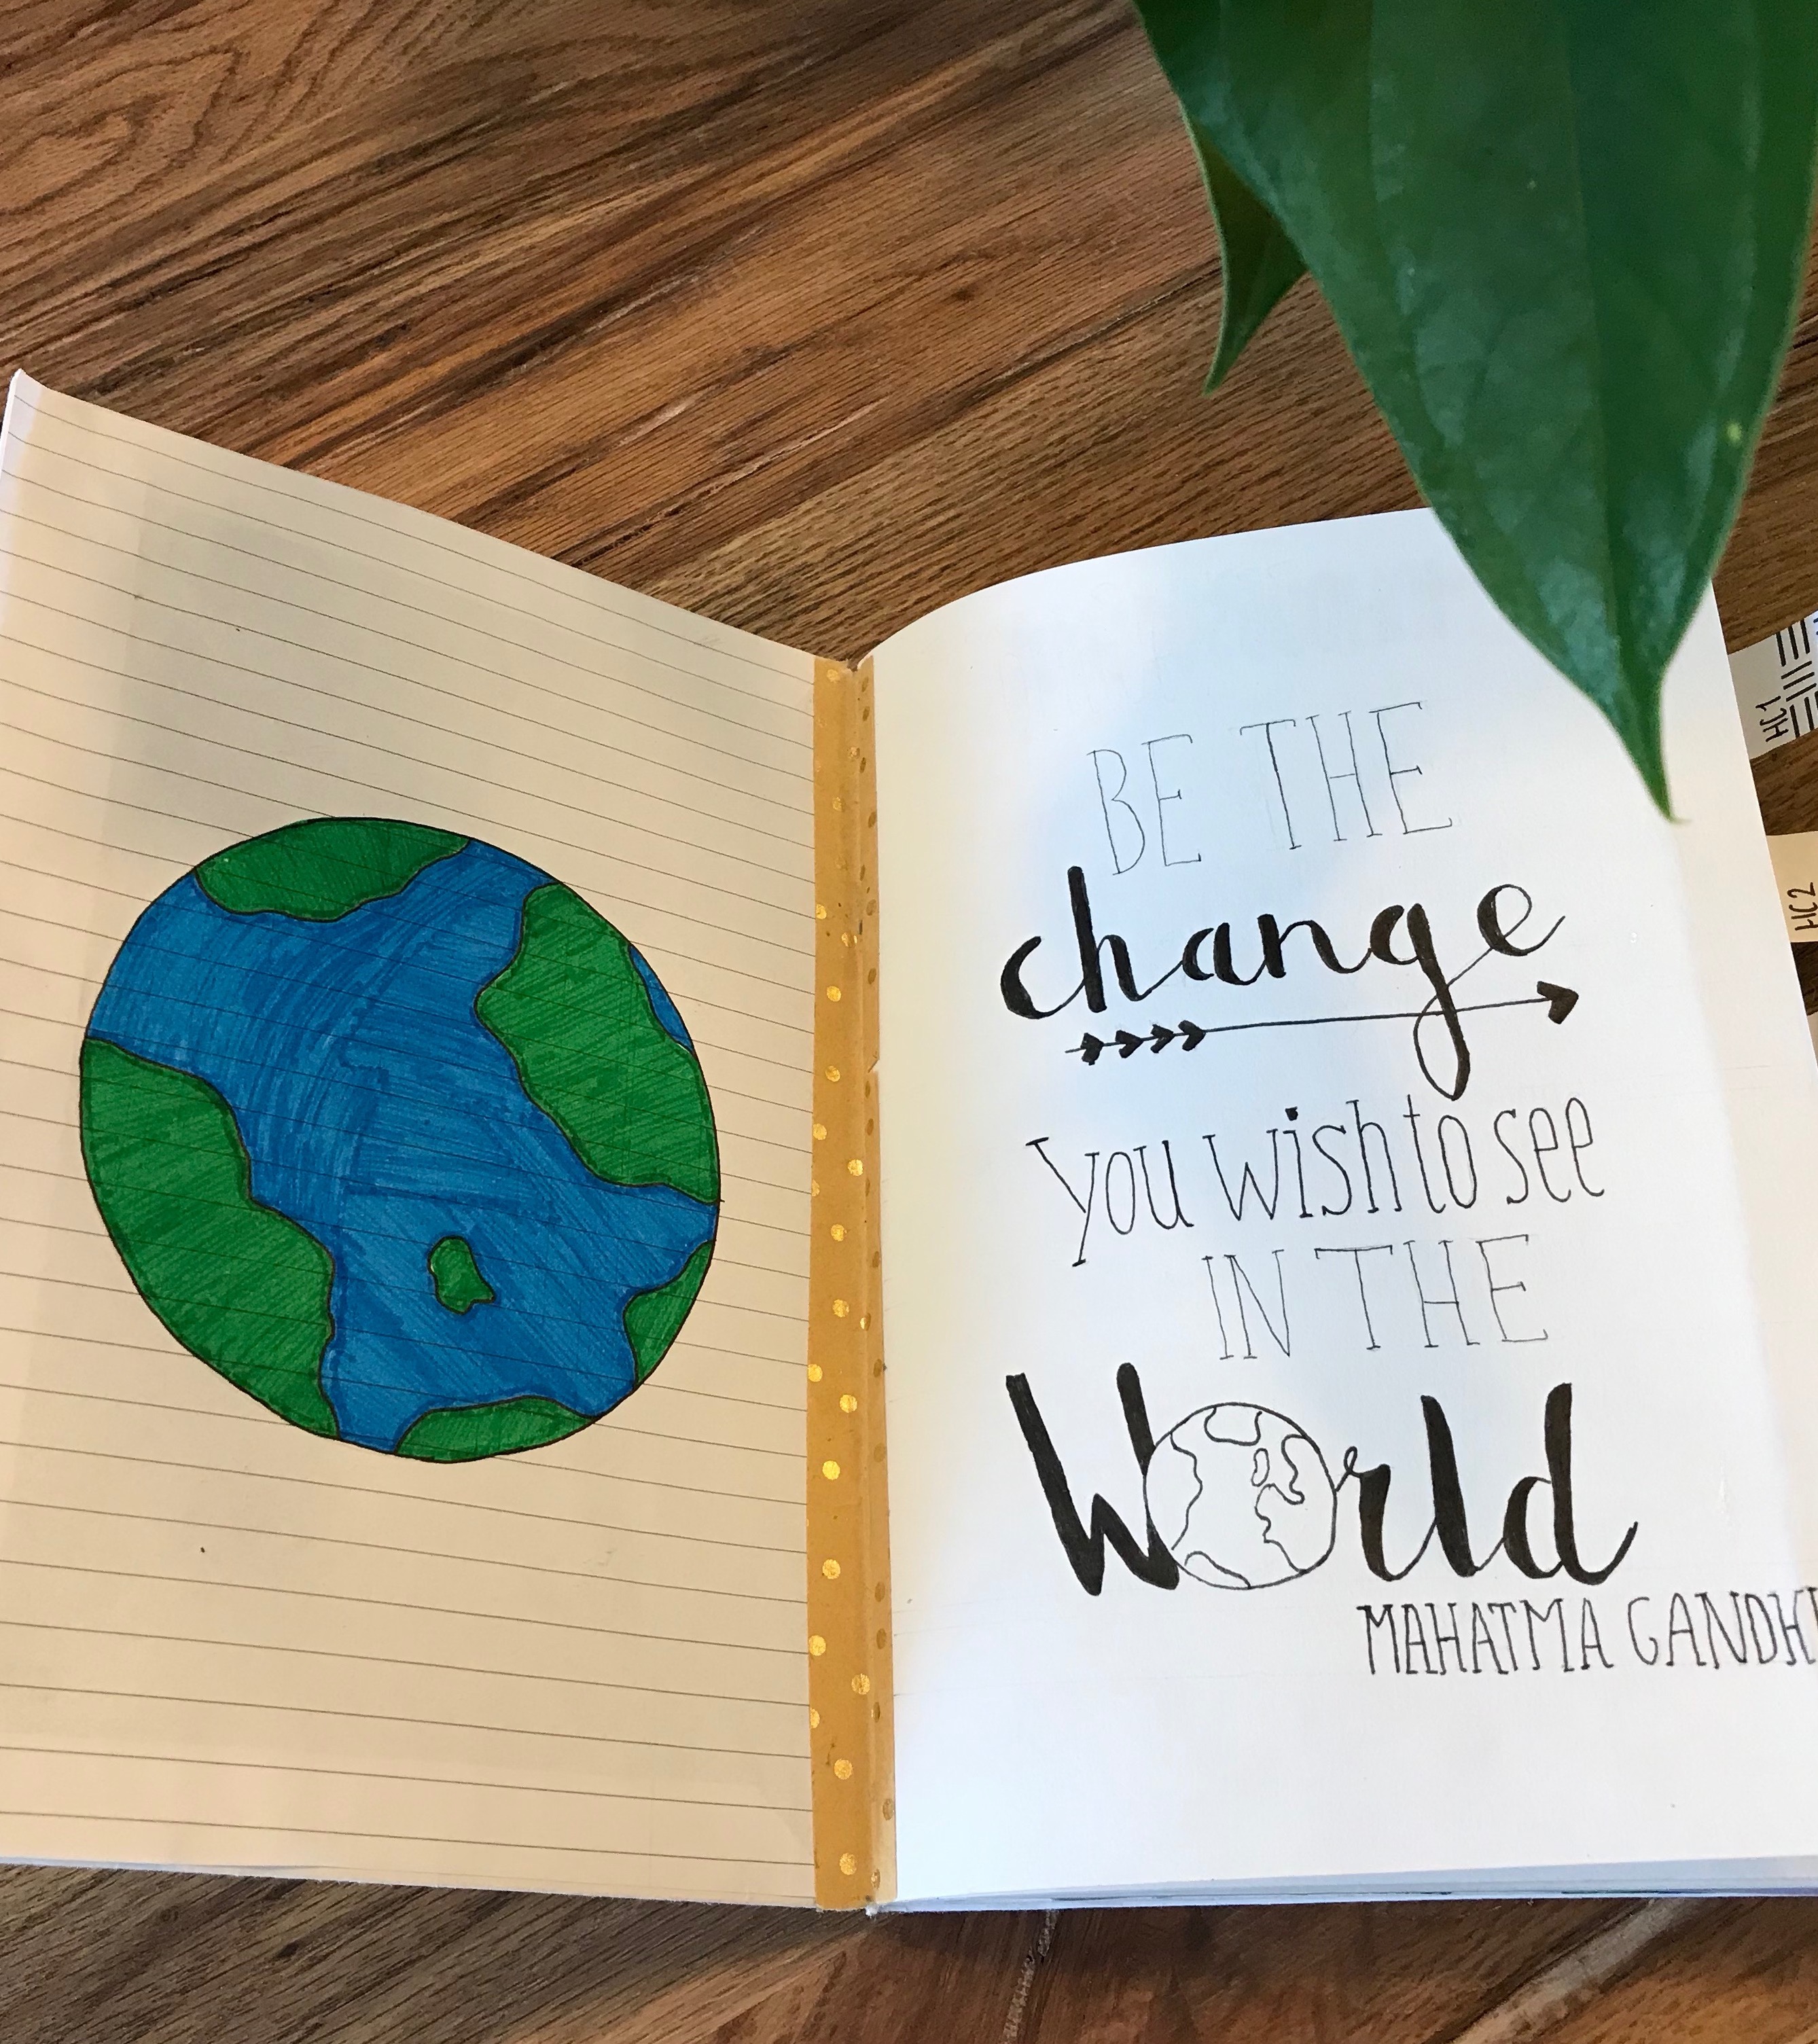 BE THE
change
you wish to see
IN THE
World
MAHATMA GANDHI
HC1
HC2